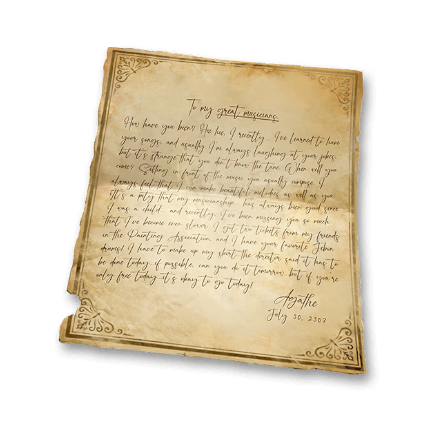 To my great musicians,
How have you been? I've learned to have
your songs, and usually I'm always laughing at your jokes,
but it's strange that you don't know the tune. When will you
come? Sitting in front of the mouse you usually
always feel that I can make beautiful melodies as well as you.
It's a pity that my musicianship has always been good since
I was a child and recently, I've been missing you so much
that I've become even slower. I got two tickets from my friends
in the Painting Association, and I have your favorite
drums! I have to make up my short the drawer said it has to
be done today, if possible, can you do it tomorrow, but if you're
only free today it's okay to go today!
Agathe
July 30, 2303